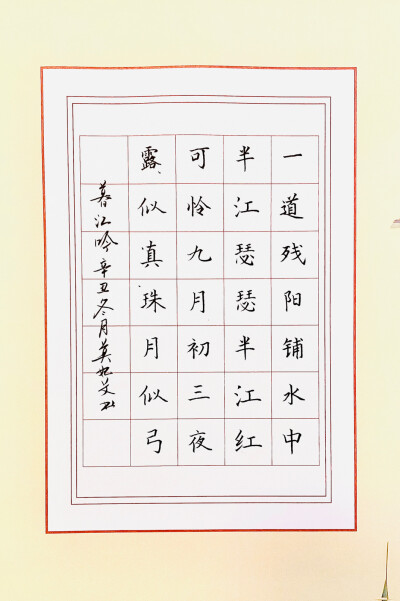 一道残阳铺水中
半江瑟瑟半江红
可怜九月初三夜
露似真珠月似弓
暮江吟辛丑冬月莫